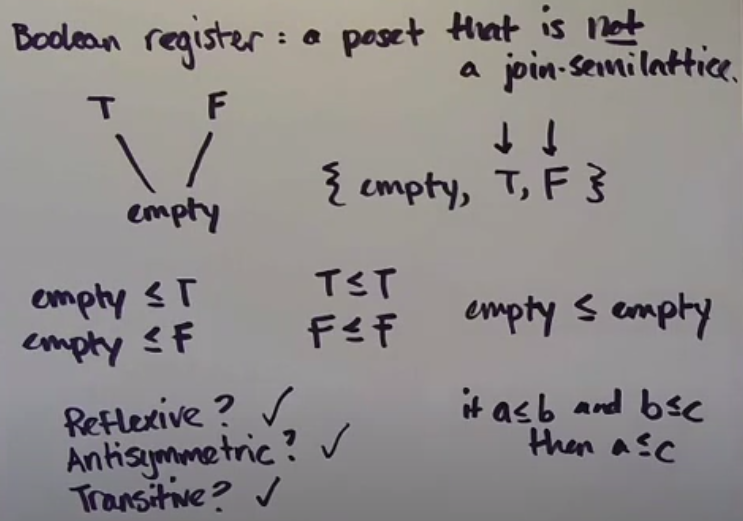 Boolean register: a poset that is not
a join-semilattice.
T F
empty
{ empty, T, F }
empty ≤ T
empty ≤ F
T ≤ T
F ≤ F
empty ≤ empty
Reflexive? ✓
Antisymmetric? ✓
Transitive? ✓
if a≤b and b≤c
then a≤c